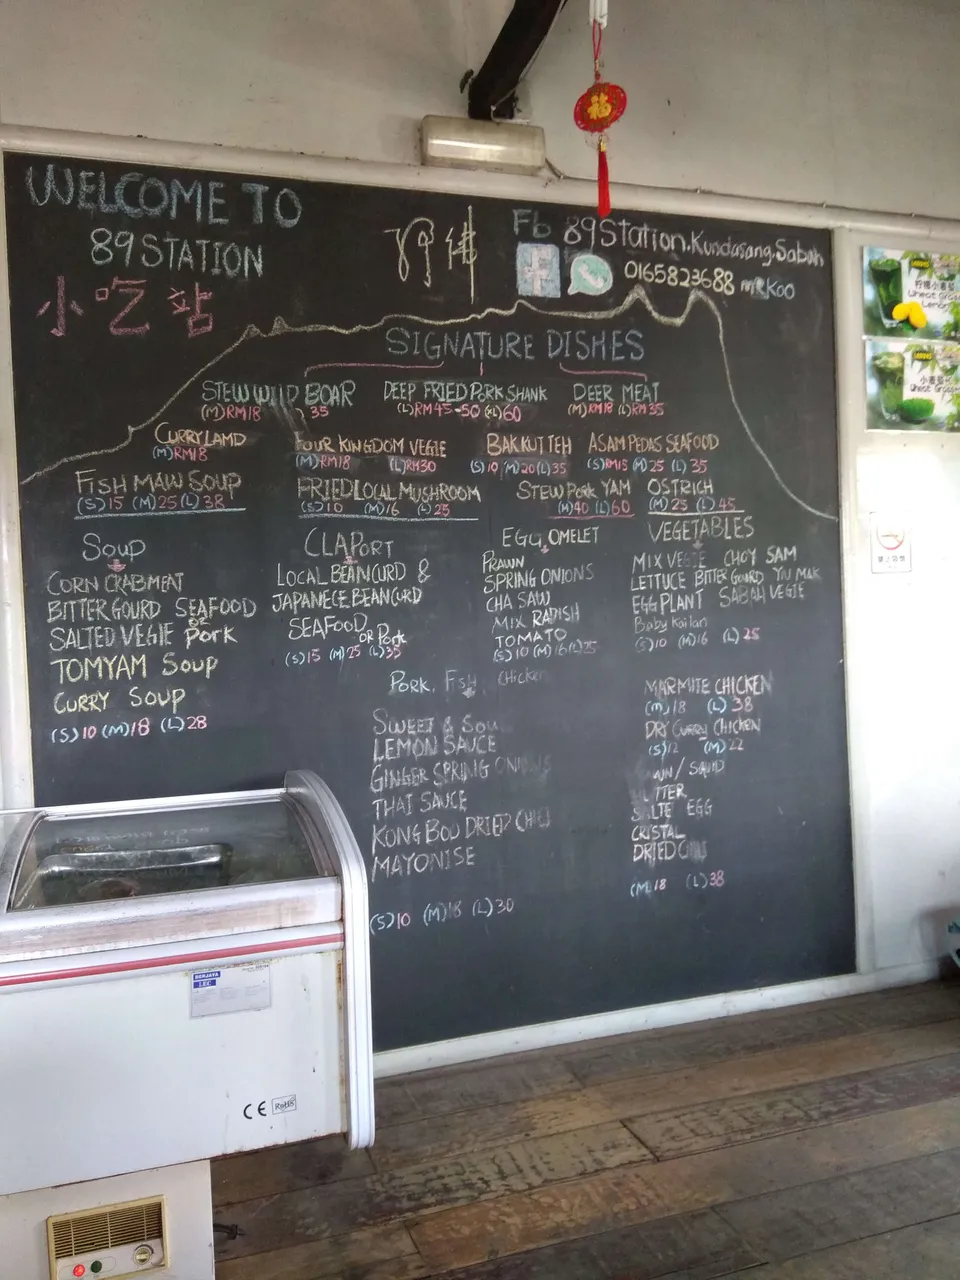 WELCOME TO
89 STATION
小吃站
Fb 89Station.Kundasang.Sabah
0165823688 mr Koo
SIGNATURE DISHES
STEW WILD BOAR
(M)RM18 35
DEEP FRIED PORK SHANK
(L)RM45-50 (XL)60
DEER MEAT
(M)RM18 (L)RM35
CURRY LAND
(M)RM18
FOUR KINGDOM VEGIE
(M)RM18 (L)RM30
BAK KUT TEH
(S)19 (M)20 (L)35
ASAM PEDAS SEAFOOD
(S)RM15 (M)25 (L)35
FISH MAW SOUP
(S)15 (M)25 (L)38
FRIED LOCAL MUSHROOM
(S)10 (M)16 (L)25
STEW PORK YAM
(M)40 (L)60
OSTRICH
(M)25 (L)45
SOUP
CORN CRABMENT
BITTER GOURD SEAFOOD
SALTED VEGIE OR PORK
TOMYAM SOUP
CURRY SOUP
(S)10 (M)18 (L)28
CLAPORT
LOCAL BEANCURD &
JAPANECE BEANCURD
SEAFOOD OR Pork
(S)15 (M)25 (L)35
EGG OMELET
PRAWN
SPRING ONIONS
CHA SAW
MIX RADISH
TOMATO
(S)10 (M)16 (L)25
VEGETABLES
MIX VEGIE CHOY SAM
LETTUCE BITTER GOURD YIU MAK
EGG PLANT SABAH VEGIE
Baby Kailan
(S)10 (M)16 (L)25
PORK, FISH, Chicken
SWEET & SOU
LEMON SAUCE
GINGER SPRING ONIONS
THAI SAUCE
KONG BOU DRIED CHILI
MAYONISE
(S)10 (M)18 (L)30
MARMITE CHICKEN
(m)18 (L)38
DRY CURRY CHICKEN
(S)12 (M)22
SALTE EGG
CRISTAL
DRIED
(M)18 (L)38
小麦草
BERJAYA
LEC
CE RoHS